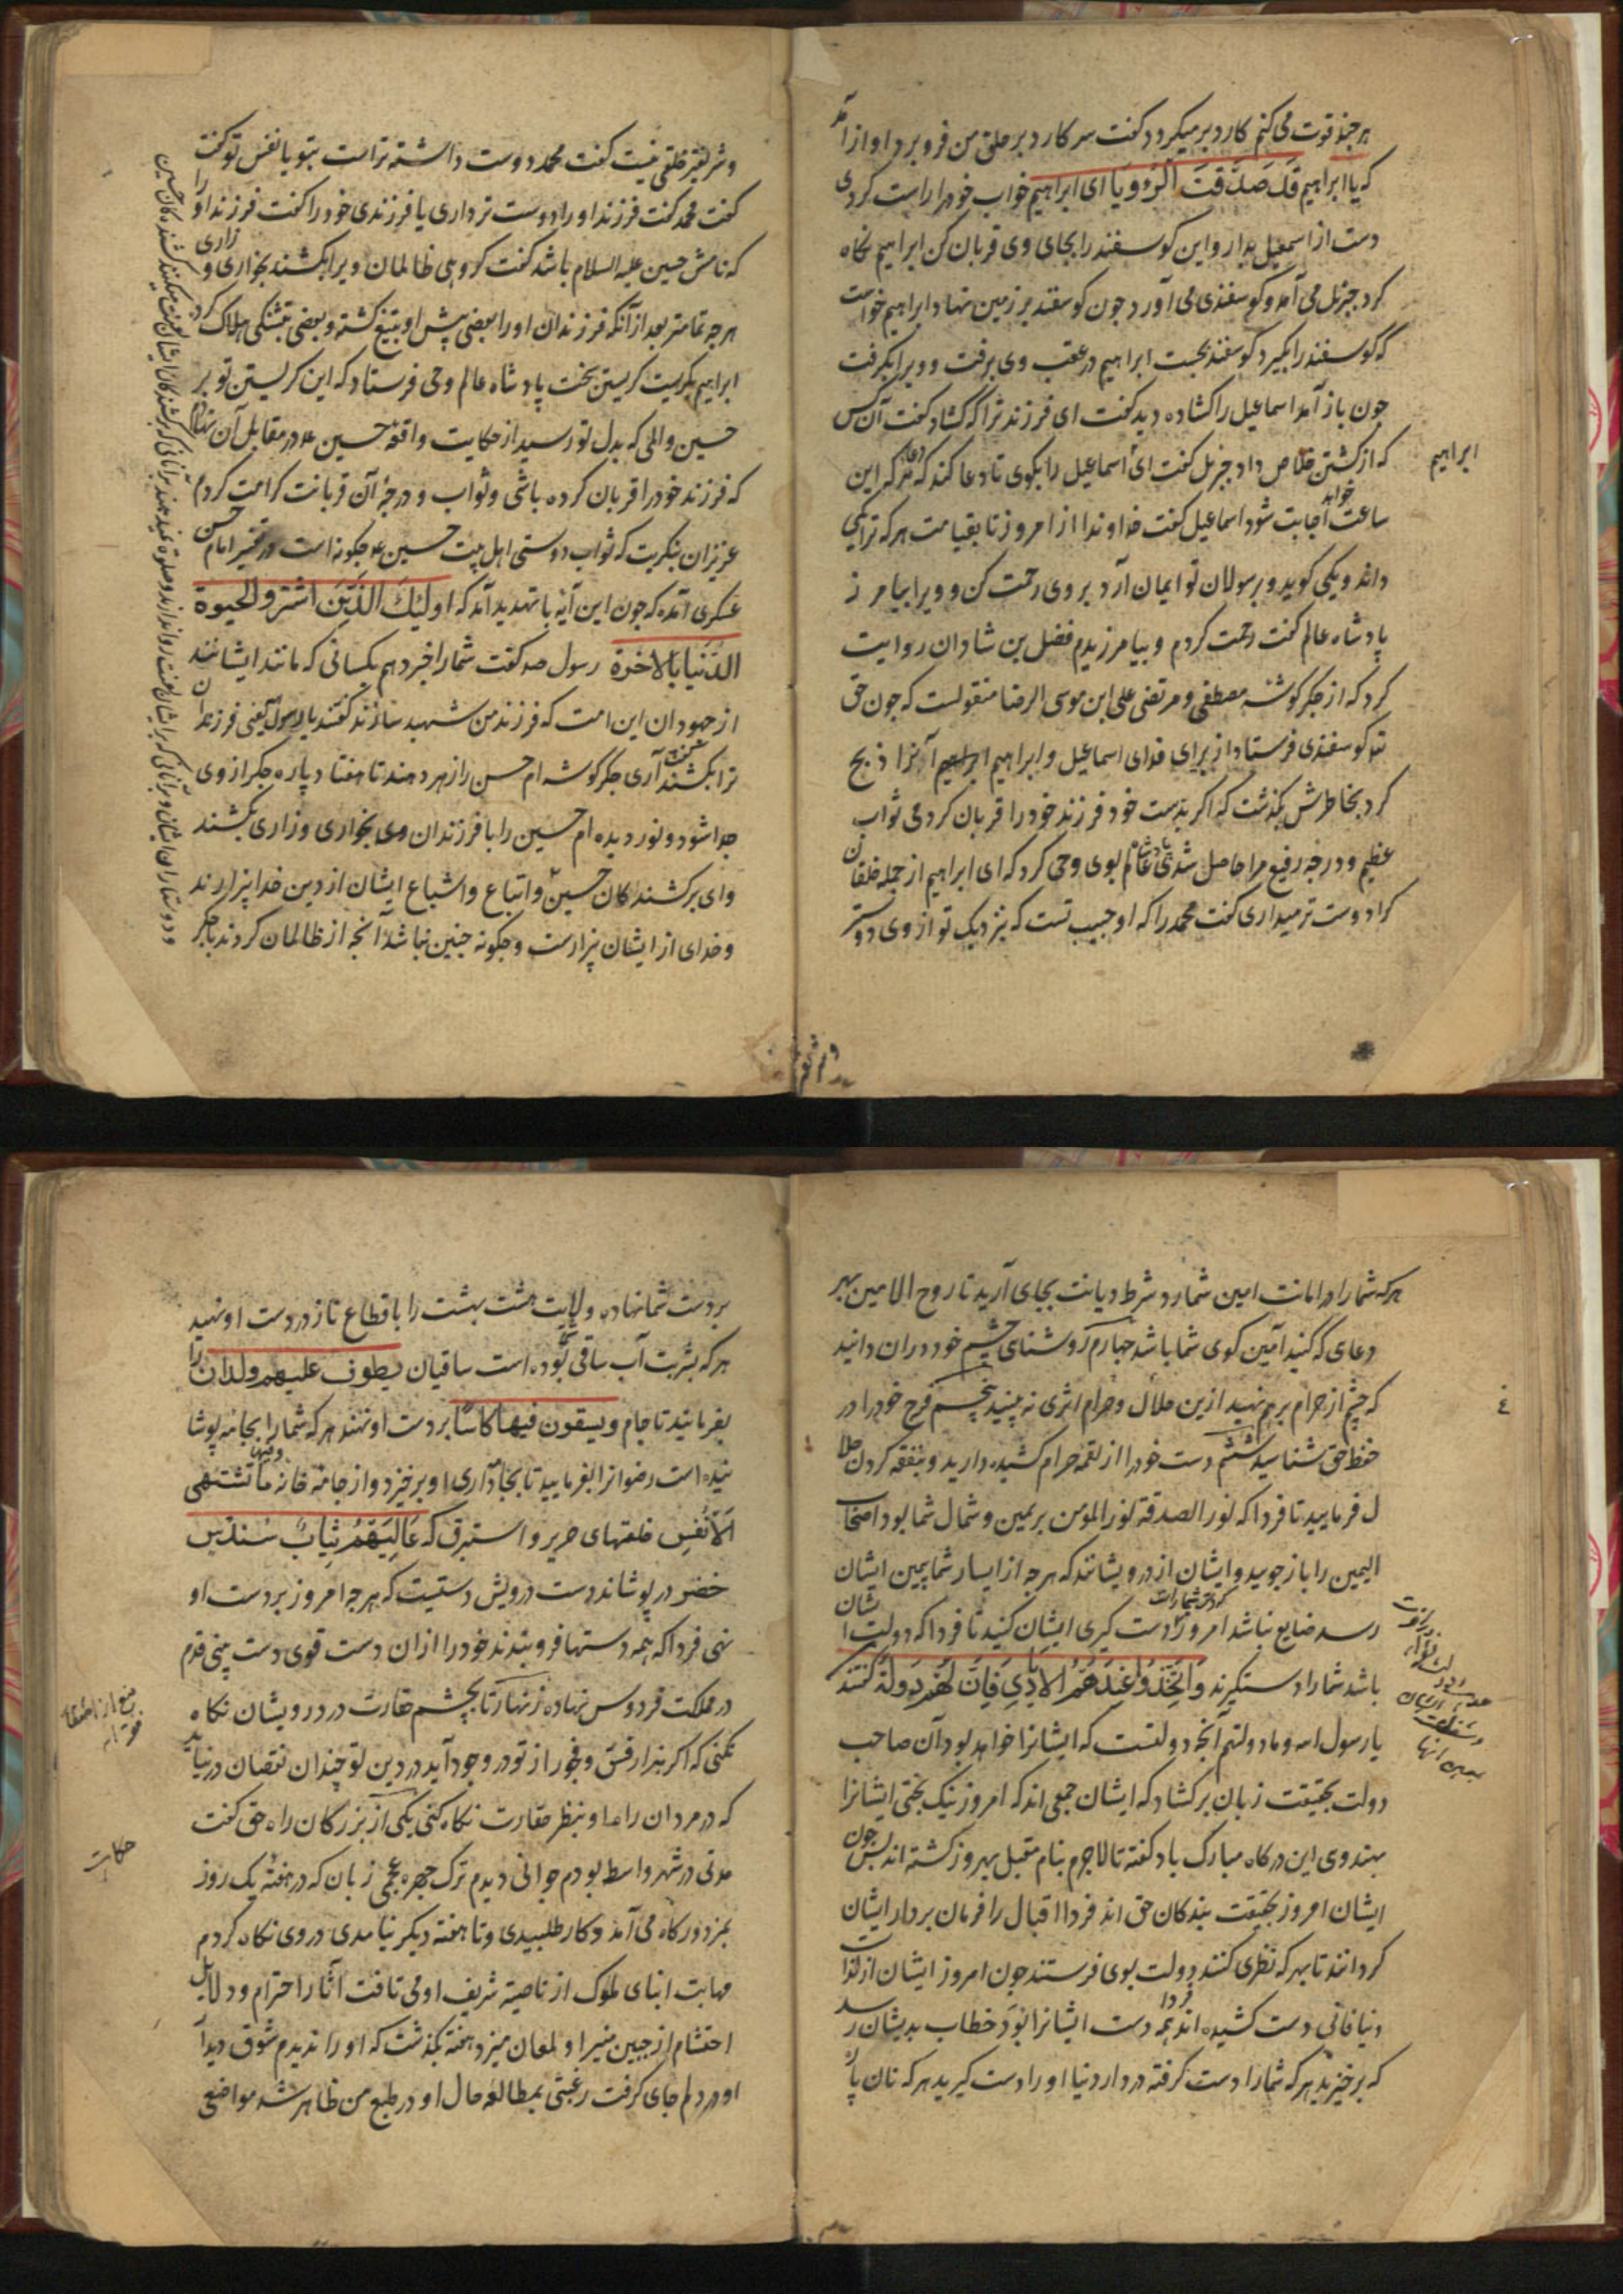 هر چند قوت می کنم کارد بر میکردد کفت سر کارد بر حلق من فرو برد اواز آمد
که یا ابراهیم قَد صَدَّقتَ الرُّوویا ای ابراهیم خواب خود را راست کردی
دست از اسمعیل بدار و این کوسفند را بجای وی قربان کن ابراهیم نکاه
کرد جبریل می آمد و کوسفندی می آورد جون کوسفند بر زمین نهاد ابراهیم خواست
که کوسفند را بکیرد کوسفند بجست ابراهیم در عقب وی برفت و ویرا بکرفت
جون باز آمد اسماعیل را کشاده دید کفت ای فرزند ترا که کشاد کفت آن کس
که از کشتن خلاص داد جبریل کفت ای ابراهیم اسماعیل را بکوی تا دعا کند که هر دعا که این
ساعت خواهد اجابت شود اسماعیل کفت خداوندا از امروز تا بقیامت هر که ترا یکی
داند و یکی کوید و برسولان تو ایمان آرد بر وی رحمت کن و ویرا بیامرز
پادشاه عالم کفت رحمت کردم و بیامرزیدم فضل بن شادان روایت
کرد که از جکر کوشه مصطفی و مرتضی علی ابن موسی الرضا منقولست که جون حق
تع کوسفندی فرستاد از برای فدای اسماعیل و ابراهیم آنرا ذبح
کرد بخاطرش بکذشت که اکر بدست خود فرزند خود را قربان کردمی ثواب
عظیم و درجه رفیع مرا حاصل شدی پادشاه عالم بوی وحی کرد که ای ابراهیم از جمله خلقان
کرا دوست تر میداری کفت محمد را که او حبیب تست که نزدیک تو از وی دوستر
و شریفتر خلقی نیست کفت محمد دوست داشته تراست بتو یا نفس تو کفت
کفت محمد کفت فرزند او را دوست تر داری یا فرزندی خود را کفت فرزند او را
که نامش حسین علیه السلام باشد کفت کروهی ظالمان ویرا بکشند بخواری و زاری
هر چه تمامتر بعد از آنکه فرزندان او را بعضی پیش او بتیغ کشته و بعضی بتشنکی هلاک کردند
ابراهیم بکریست کریستن سخت پادشاه عالم وحی فرستاد که این کریستن تو بر
حسین و المی که بدل تو رسید از حکایت واقعه حسین ع در مقابل آن نهادم
که فرزند خود را قربان کرده باشی و ثواب و درجه آن قربانت کرامت کردم
عزیزان بنکریت که ثواب دوستی اهل بیت حسین ع جکونه است در تفسیر امام حسن
عسکری آمده که جون این آیه با تهدید آمد که اولئک الذین اشترو الحیوة
الدنیا بالاخرة رسول ص کفت شما را خبر دهم بکسانی که مانند ایشانند
از جهودان این امت که فرزند من شهید سازند کفتند یا رسول الله یعنی فرزندان
ترا بکشند کفت آری جکر کوشه ام حسن را زهر دهند تا هفتاد پاره جکر از وی
جدا شود و نور دیده ام حسین را با فرزندان وی بخواری و زاری بکشند
وای بر کشندکان حسین و اتباع و اشیاع ایشان از دین خدا بیزارند
و خدای از ایشان بیزارست و جکونه جنین نباشد آنچه از ظالمان کردند با جکر
هر که شما را در امانت امین شمارد شرط دیانت بجای آرید تا روح الامین بهر
دعای که کنید آمین کوی شما باشد جهارم روشنای چشم خود در ان دانید
که چشم از حرام برهم نهید ازین حلال و حرام اثری نه بینید پنجم فرج خود را در
حفظ حق شناسید ششم دست خود را از لقمه حرام کشیده دارید و بنفقه کردن حلا
ل فرمایید تا فردا که نور الصدقة نور المومن بر یمین و شمال شما بود اصحاب
الیمین را باز جویید و ایشان از درویشانند که هر چه از ایسار شما بیمین ایشان
رسد ضایع نباشد امروز دست کیری ایشان کنید تا فردا که دولت ایشان
باشد شما را دستکیرند وَاتَّخِذُوا عِندَهُمُ الاَیادِی فَاِنَّ لَهُم دَولَةً کفتند
یا رسول الله و ما دولتهم آنچه دولتست که ایشانرا خواهد بود آن صاحب
دولت بحقیقت زبان بر کشاد که ایشان جمعی اند که امروز نیک بختی ایشانرا
بهندوی این درکاه مبارک باد کفته تا لاجرم بنام مقبل بهروز کشته اند پس جون
ایشان امروز بحقیقت بندکان حق اند فردا اقبال را فرمان بردار ایشان
کردانند تا بهر که نظری کنند دولت بوی فرستند جون امروز ایشان از لذات
دنیا فانی دست کشیده اند فردا همه دست ایشانرا بود خطاب بدیشان رسد
که برخیزید هر که شما را دست کرفته در دار دنیا او را دست کیرید هر که نان پاره
بر دست شما نهاده ولایت هشت بهشت را باقطاع تازه در دست او نهید
هر که بشربت آب ساقی شما بوده است ساقیان یطوف علیهم ولدان را
بفرمایند تا جام و یسقون فیها کاسًا بر دست او نهند هر که شما را بجامه پوشا
نیده است رضوانرا بفرمایید تا بجامه داری او برخیزد و از جامه خانه و فیها ما تشتهی
الاَنفُس خلعتهای حریر و استبرق که عَالِیَهُم ثِیابُ سُندُسٍ
خضر در پوشاند دست درویش دستیست که هر چه امروز بر دست او
نهی فردا که همه دستها فرو بندند خود را از ان دست قوی دست بینی قدم
در مملکت فردوس نهاده زنهار تا بچشم حقارت در درویشان نکاه
نکنی که اکر هزار فسق و فجور از تو در وجود آید در دین تو چندان نقصان درنیاید
که در مردان راه او بنظر حقارت نکاه کنی یکی از بزرکان راه حق کفت
حکایت
مدتی در شهر واسط بودم جوانی دیدم ترک چهره عجمی زبان که در هفته یک روز
بمزدورکاه می آمد و کار طلبیدی و تا هفته دیکر نیامدی در وی نکاه کردم
مهابت ابنای ملوک از ناصیه شریف او می تافت آثار احترام و دلایل
احتشام از جبین منیر او لمعان میزد هفته بکذشت که او را ندیدم شوق دیدار
او در دلم جای کرفت رغبتی بمطالعه حال او در طبع من ظاهر شد مواضعی